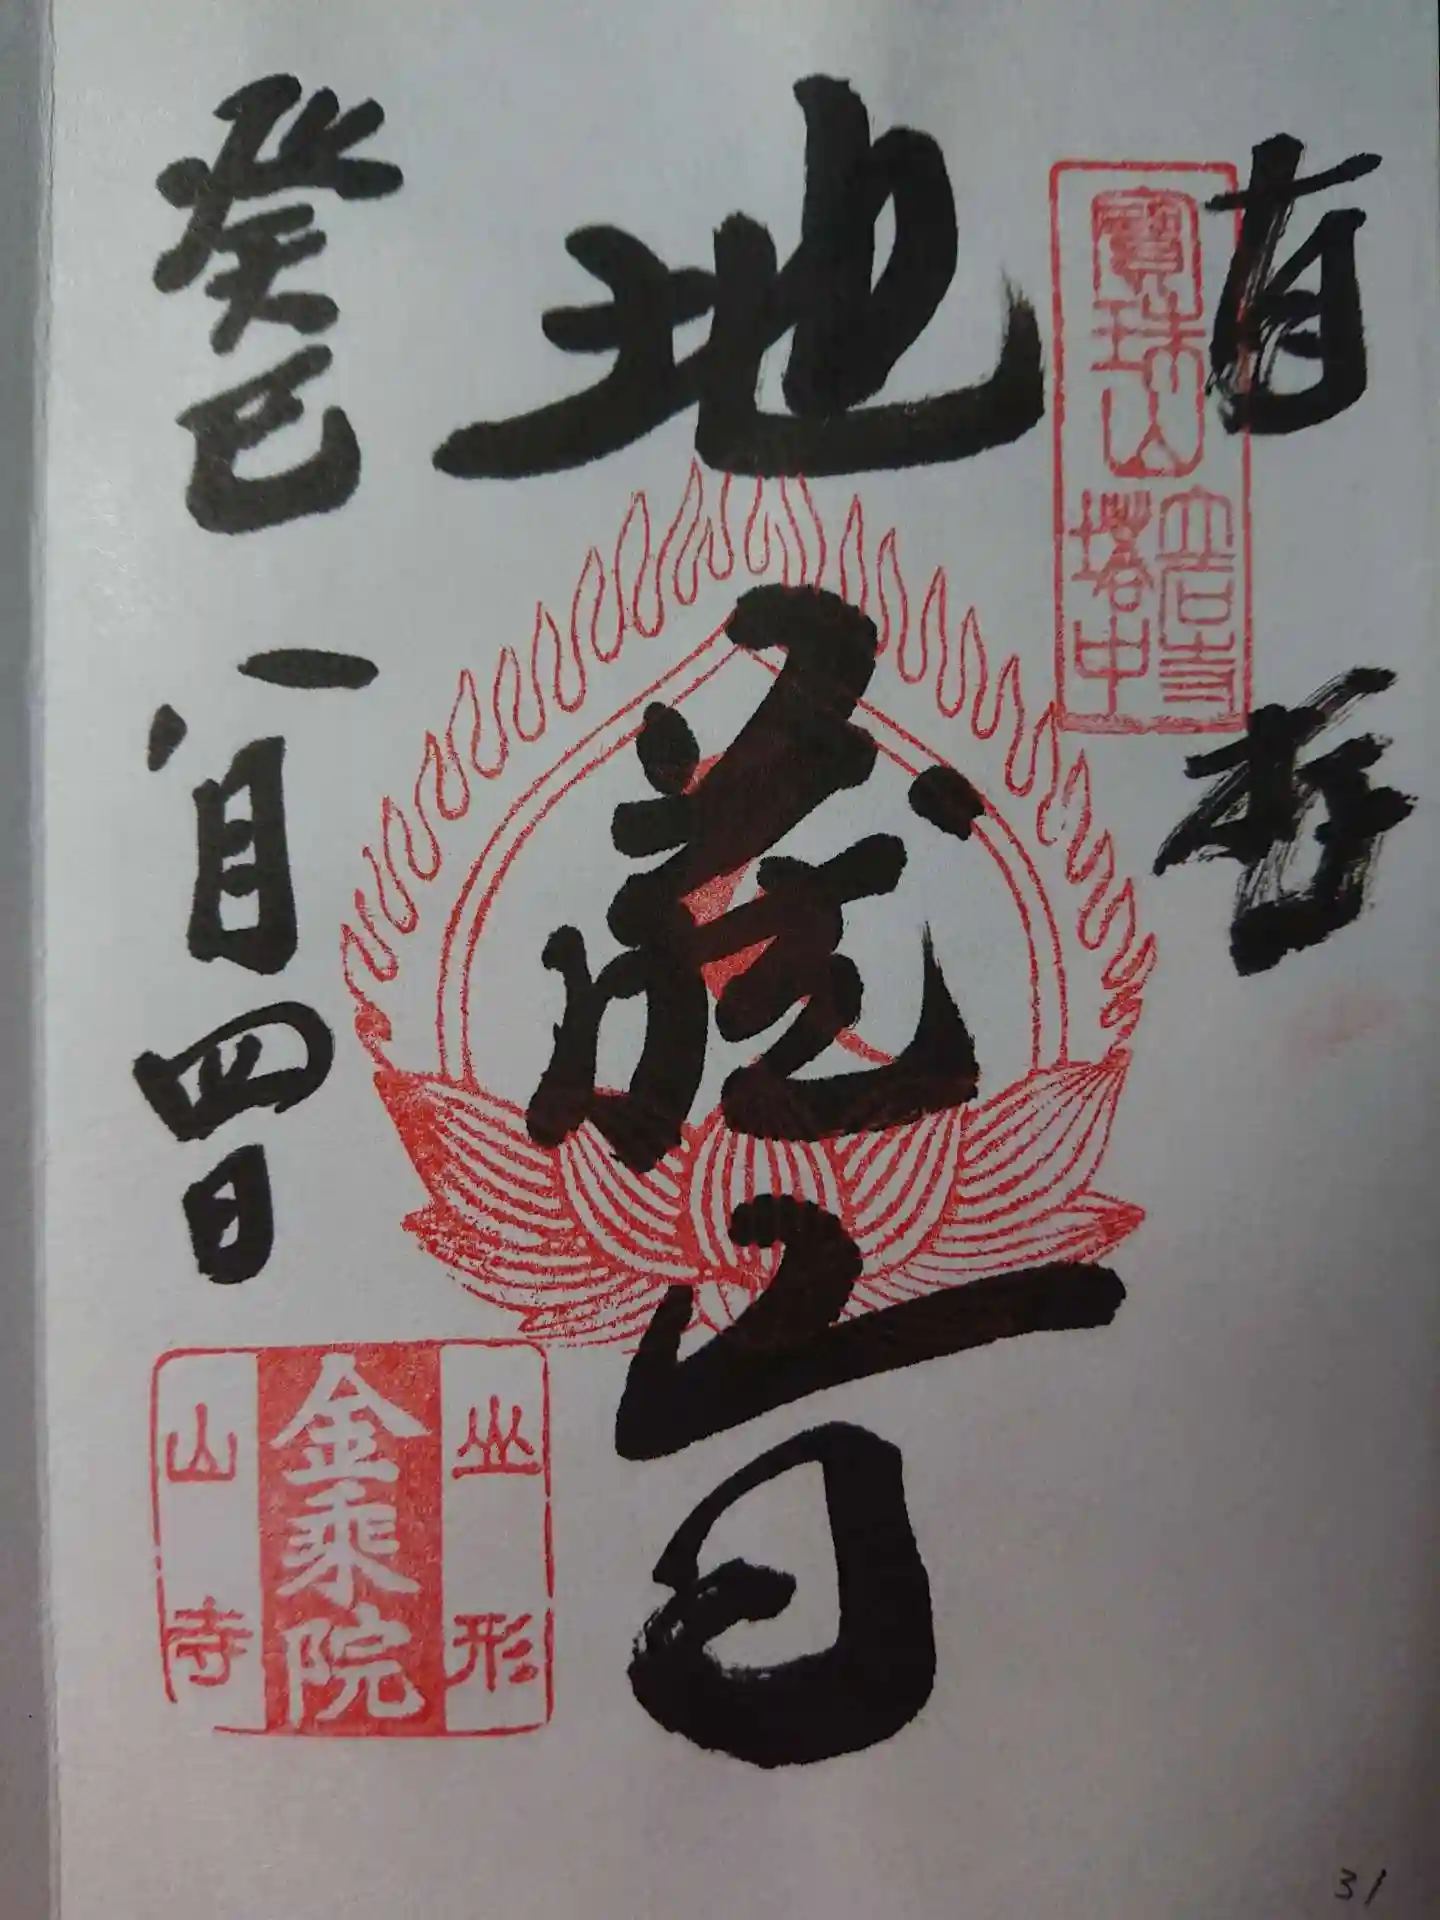 有拝
寶珠山
立石寺
塔中
地蔵尊
癸巳 八月四日
山形
金乘院
山寺
31